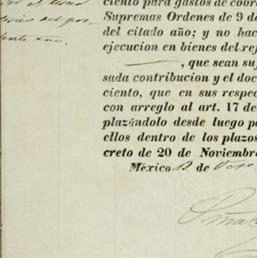 ciento para gastos de cobr
Supremas Ordenes de 9 de
del citado año; y no hac
ejecucion en bienes del ref
, que sean suf
sada contribucion y el doc
ciento, que en sus respec
con arreglo al art. 17 de
plazándolo desde luego pa
ellos dentro de los plazos
creto de 20 de Noviembre
México 12 de